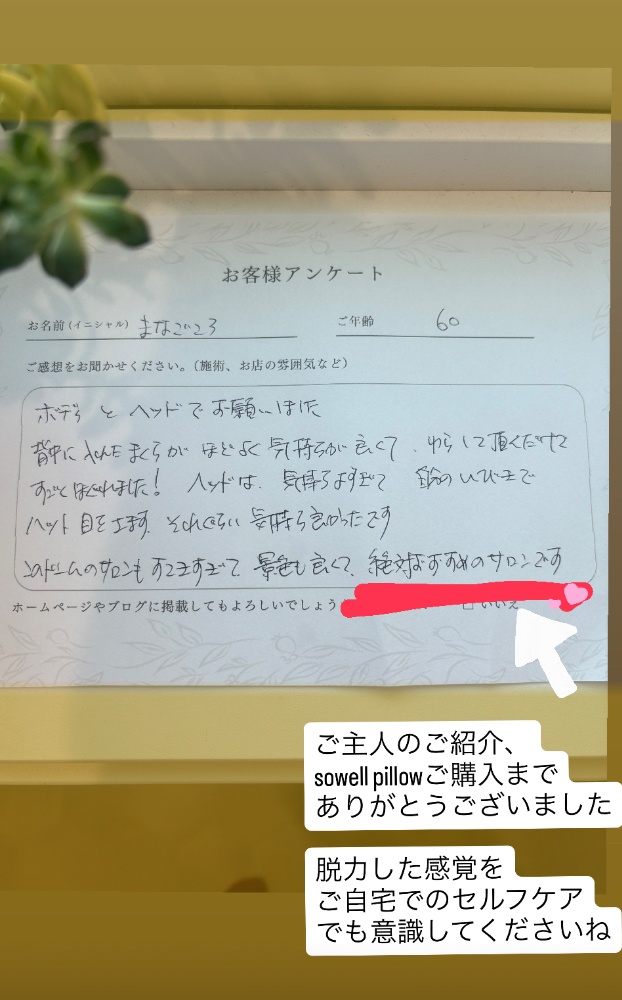 お客様アンケート
お名前(イニシャル) まなごころ
ご年齢 60
ご感想をお聞かせください。(施術、お店の雰囲気など)
ボディ と ヘッドで お願いしました
背中に 入れた まくらが ほどよく 気持ちが良くて、ゆらして頂くだけで
すごくほぐれました! ヘッドは、気持ちよすぎて 自分のいびきで
ハット 目をさます それくらい 気持ち良かったです
このドームのサロンも すてきすぎて 景色も良くて、絶対おすすめのサロンです
ホームページやブログに掲載してもよろしいでしょう
いいえ
ご主人のご紹介、
sowell pillowご購入まで
ありがとうございました
脱力した感覚を
ご自宅でのセルフケア
でも意識してくださいね